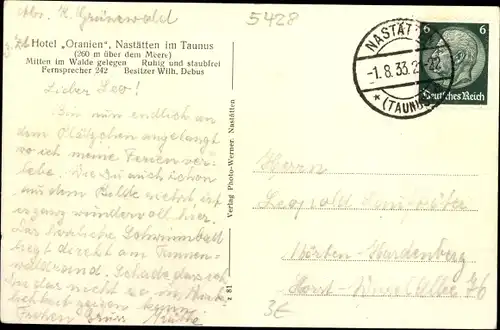 Abs. K. Grünewald
5428
z. Zt. Hotel „Oranien“, Nastätten im Taunus
(260 m über dem Meere)
Mitten im Walde gelegen Ruhig und staubfrei
Fernsprecher 242 Besitzer Wilh. Debus
Lieber Leo!
Bin nun endlich an
dem Plätzchen angelangt
wo ich meine Ferien ver-
lebe. Wie Du auch schon
aus dem Bilde siehst, ist
es ganz wundervoll hier.
Das herrliche Schwimmbad
liegt direkt am Tannen-
waldrand. Schade dass ich
Dir das nicht so in Wirk-
lichkeit zeigen kann.
Frohen Gruß
Verlag Photo-Werner, Nastätten
z 81
NASTÄTTEN
-1.8.33.
(TAUNUS)
6 6
Deutsches Reich
Herrn
Leopold
Nörten-Hardenberg
3€